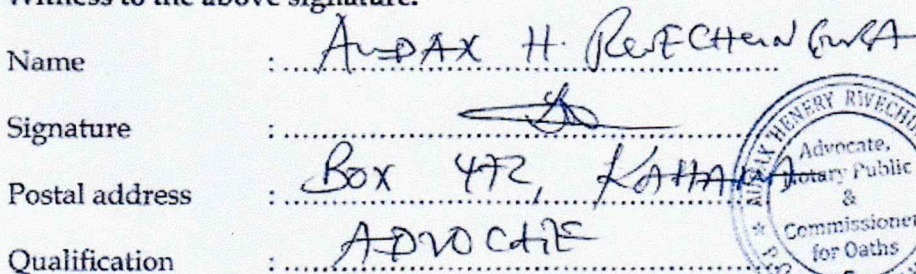 Witness to the above signature.
Name : AUDAX H. RWECHUNGURA
Signature :
Postal address : BOX 472, KAHAMA
Qualification : ADVOCATE
AUDAX HENERY RWECHU
Advocate,
Notary Public
&
Commissioner
for Oaths